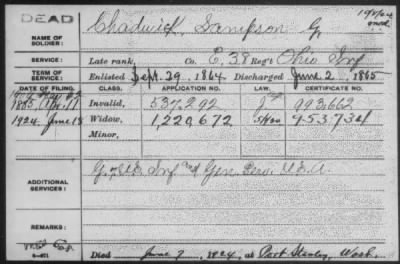 DEAD
NAME OF SOLDIER: Chadwick, Sampson G.
SERVICE: Late rank, Co. E, 38 Reg't Ohio Inf
TERM OF SERVICE: Enlisted Sept. 29, 1864 Discharged June 2, 1865
DATE OF FILING. CLASS. APPLICATION NO. LAW. CERTIFICATE NO.
1885 Invalid, 537.292 993.662
1924 June 18 Widow, 1,220,672 953734
Minor,
ADDITIONAL SERVICES: Inf and Gen Serv. U.S.A.
REMARKS:
Died June 7, 1924, at Port Stanley, Wash.